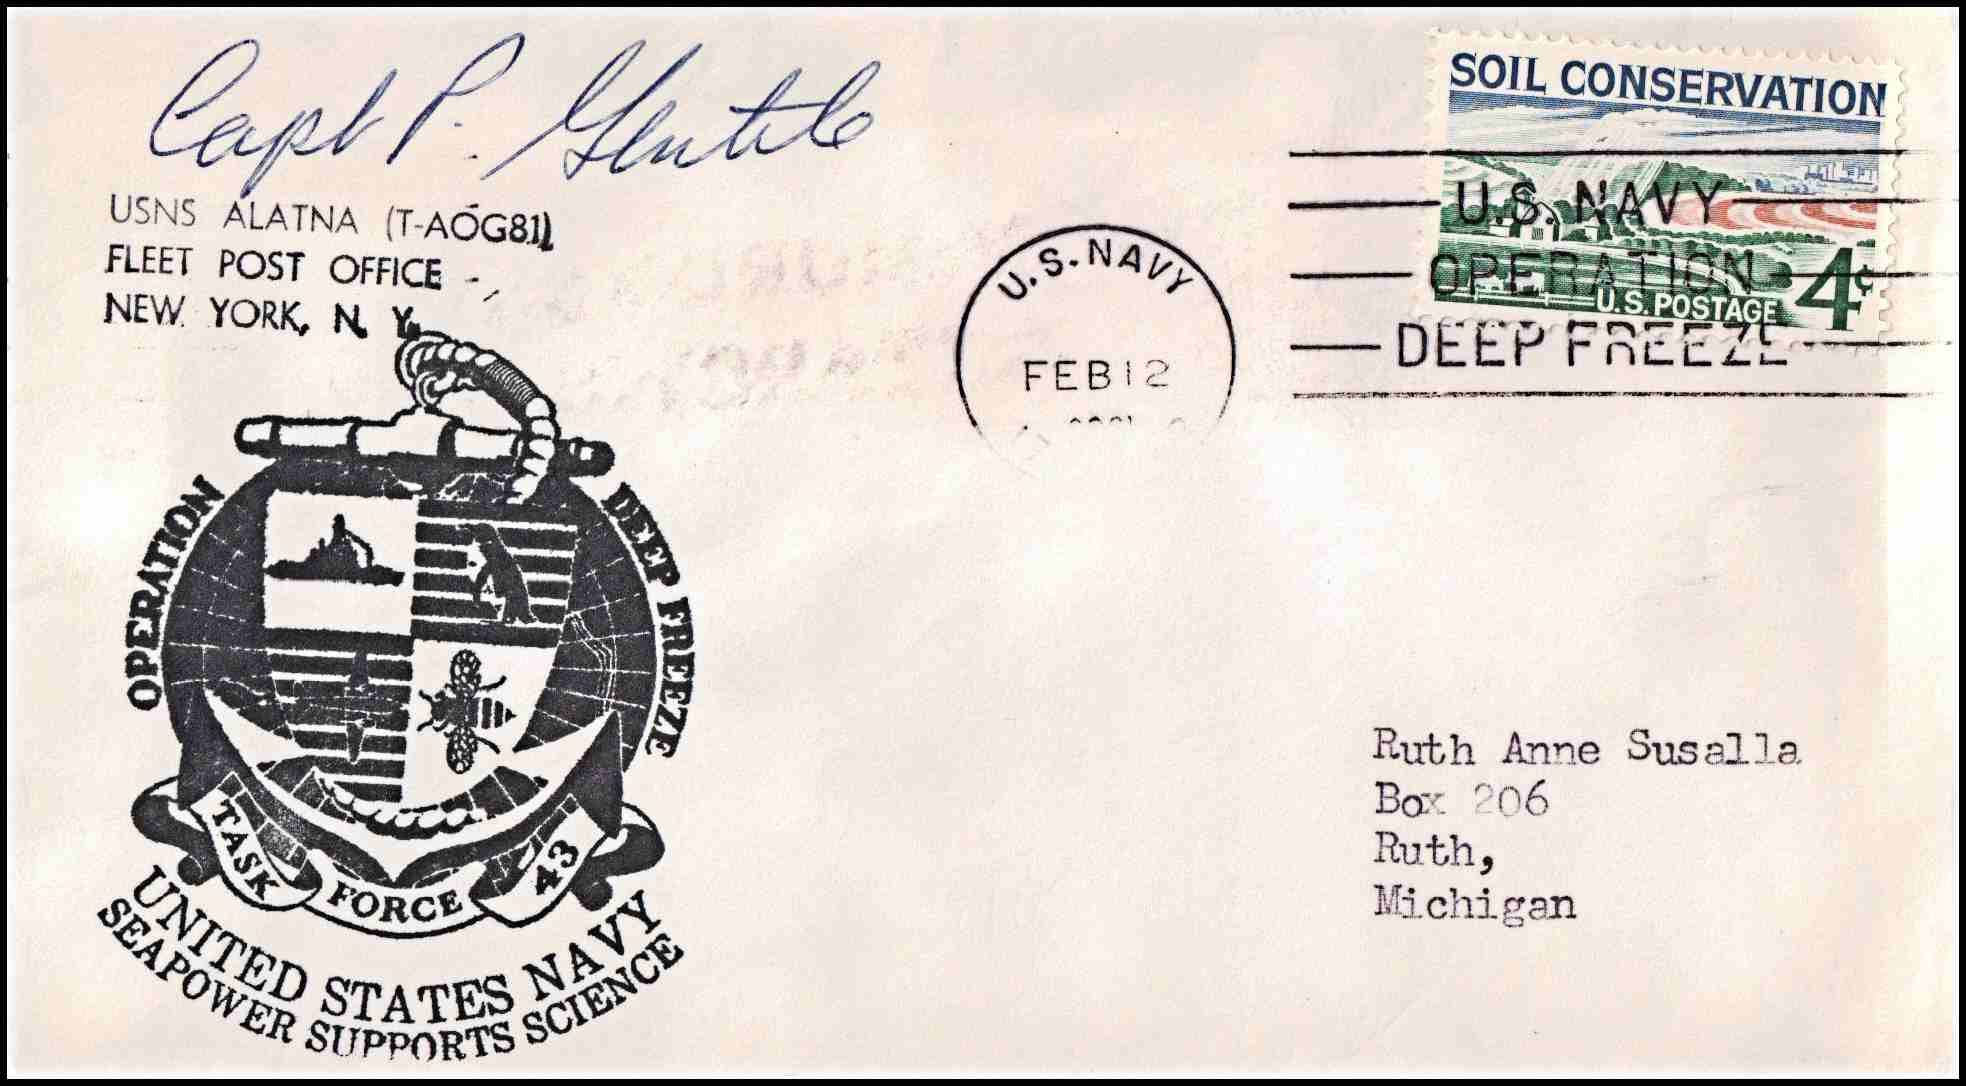 Capt P. Gentile
USNS ALATNA (T-AOG81)
FLEET POST OFFICE
NEW YORK, N. Y.
SOIL CONSERVATION
U.S. POSTAGE 4¢
U.S. NAVY
FEB 12
U.S. NAVY
OPERATION
DEEP FREEZE
OPERATION DEEP FREEZE
TASK FORCE 43
UNITED STATES NAVY
SEAPOWER SUPPORTS SCIENCE
Ruth Anne Susalla
Box 206
Ruth,
Michigan